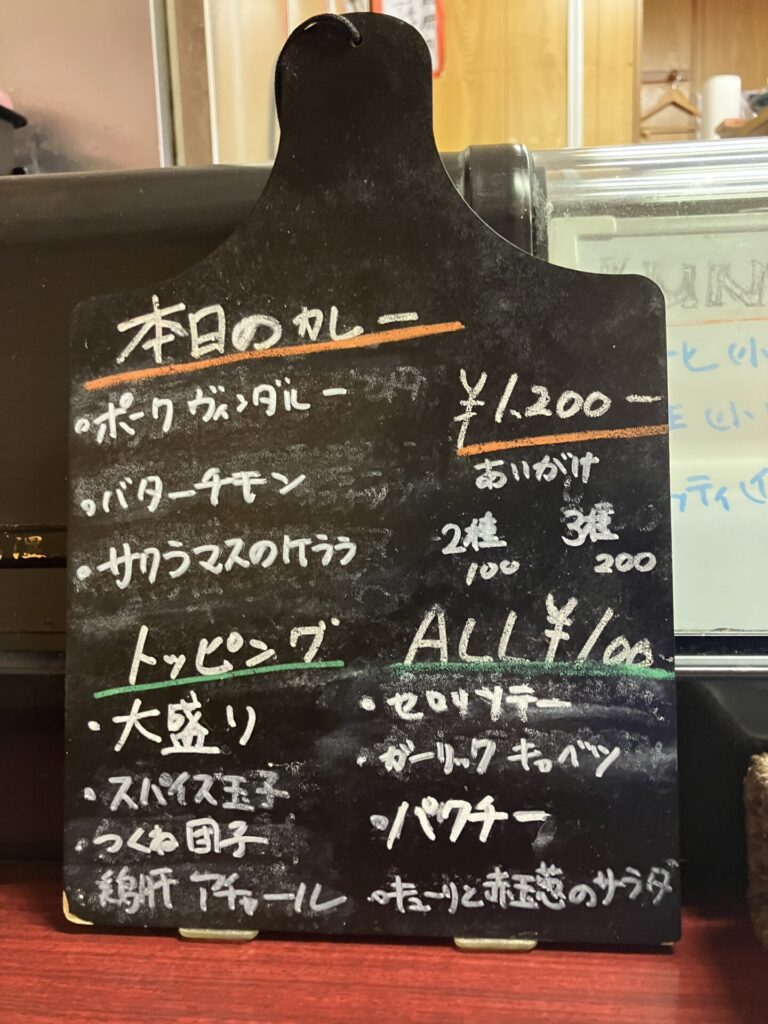 本日のカレー
・ポークヴィンダルー
¥1,200-
あいがけ
・バターチキン
2種
100
3種
200
・サクラマスのケララ
トッピング
ALL ¥100-
・大盛り
・スパイス玉子
・つくね団子
鶏肝アチャール
・セロリソテー
・ガーリックキャベツ
・パクチー
・キューリと赤玉葱のサラダ
UN